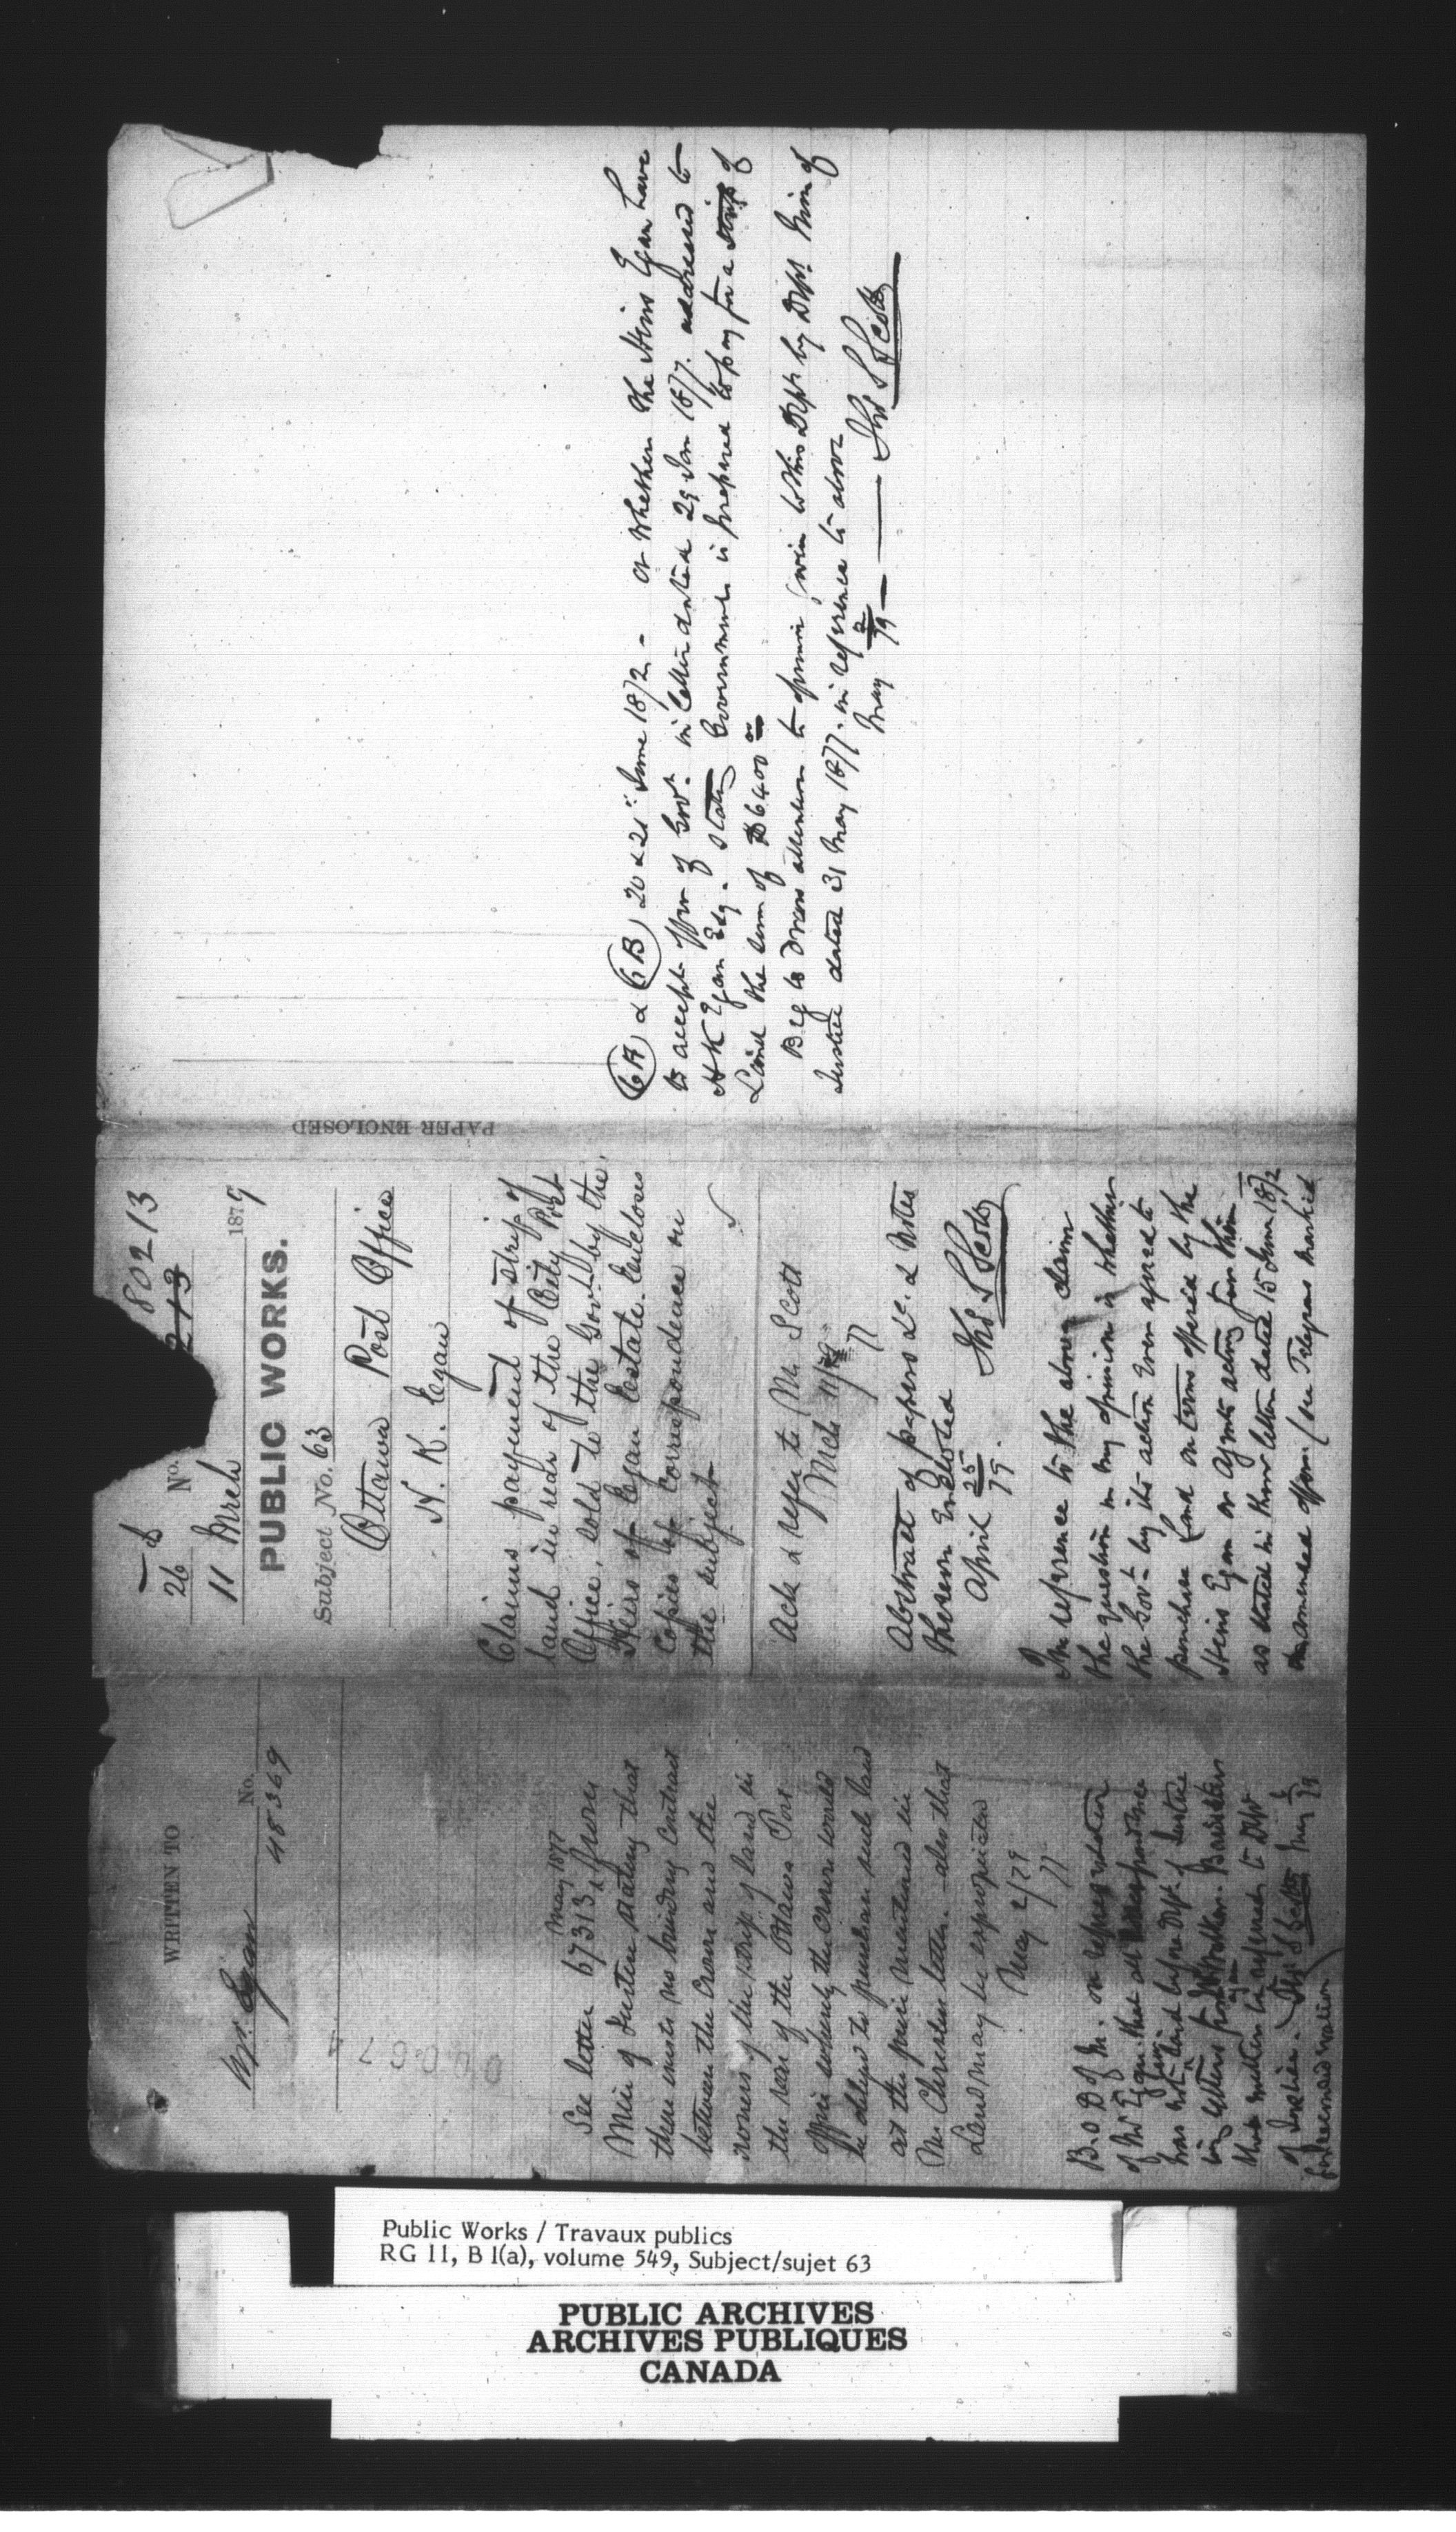 WRITTEN TO
No.
Mr. Egan 48369
See letter 67313 May 1877 from
Min of Justice stating that
there exists no binding contract
between the Crown and the
owners of the strip of land in
the rear of the Ottawa Post
Office whereby the Crown would
be obliged to purchase such land
at the price mentioned in
Mr Chrysler's letter. also that
Land may be expropriated
May 2/79
B. O D of M. on representation
of Mr Egan that all correspondence
has not been laid before Dept. of Justice
that matter be again referred to Dept
of Justice. Thos S Scott May
for reconsideration
26 No. 80213
213
11 Mrch 1879
PUBLIC WORKS.
Subject No. 63
Ottawa Post Office
H. K. Egan
Claims payment of strip of
land in rear of the City Post
Office, sold to the Govt by the
Heirs of Egan Estate. Encloses
Copies of Correspondence on
the subject
Ack & refer to Mr. Scott
Mch 11/79
Abstract of papers &c. & Notes
thereon Enclosed
April 25/79. Thos S Scott
In reference to the above claim
the question in my opinion is whether
the Govt by its action even agreed to
purchase Land on terms offered by the
Heirs Egan or Agents acting for them
as stated in their letter dated 15 June 1872
amended offers. (see Telegrams marked
PAPER ENCLOSED
6A & 6B 20 & 21st June 1872 - or whether the Heirs Egan have
to accept offer of Govt. in letter dated 29 Jan 1877. addressed to
H K Egan Esq. stating Government is prepared to pay for a strip of
Land the sum of $6400 00
Beg to Draw attention to opinion given to this Dept by Dept. Min of
Justice dated 31 May 1877. in reference to above
May 2/79 Thos S Scott
Public Works / Travaux publics
RG 11, B 1(a), volume 549, Subject/sujet 63
PUBLIC ARCHIVES
ARCHIVES PUBLIQUES
CANADA